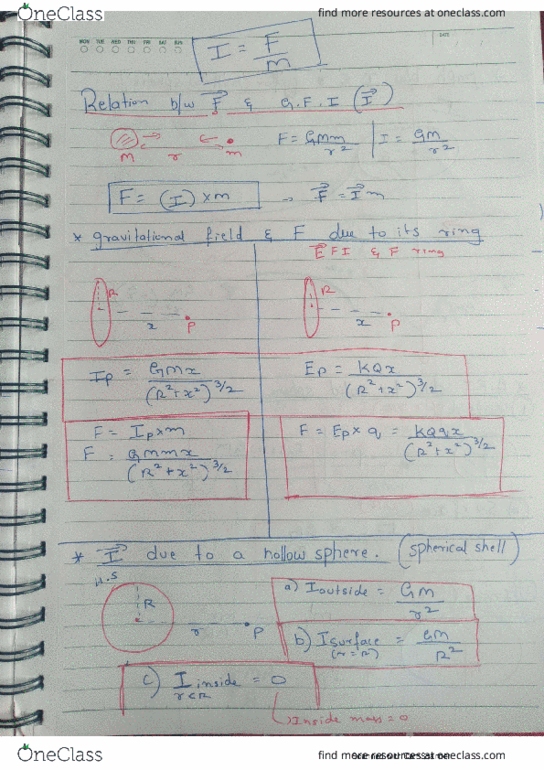 OneClass
find more resources at oneclass.com
MON TUE WED THU FRI SAT SUN
DATE
I = F/m
Relation b/w F⃗ & G.F.I (I⃗)
M r m
F = GMm/r² | I = GM/r²
F = (I) × m → F⃗ = I⃗m
* gravitational field & F due to its ring
E⃗FI & F ring
R x P
R x P
Ip = GMx/(R²+x²)^3/2
Ep = kQx/(R²+x²)^3/2
F = Ip×m
F = Ep × q = kQqx/(R²+x²)^3/2
F = GMmx/(R²+x²)^3/2
* I⃗ due to a hollow sphere. (spherical shell)
H.S
R r P
a) Ioutside = GM/r²
b) Isurface = GM/R²
(r=R)
c) I inside = 0
r<R
↳ Inside mass = 0
OneClass
find more resources at oneclass.com